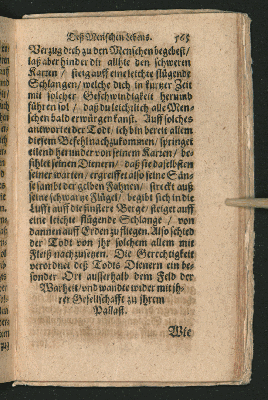 Deß Menschen Lebens. 565
Verzug dich zu den Menschen begebest/
laß aber hinder dir allhie den schweren
Karren / steig auff eine leichte flügende
Schlangen/ welche dich in kurtzer Zeit
mit solcher Geschwindigkeit herumb
führen sol / daß du leichtlich alle Men-
schen bald erwürgen kanst. Auff solches
antwortet der Todt, ich bin bereit allem
diesem Befehl nachzukommen / springet
eilend herunder von seinem Karren/ be-
fihlet seinen Dienern/ daß sie daselbsten
seiner warten/ ergreiffet also seine Sän-
se sambt der gelben Fahnen/ streckt auß
seine schwartze Flügel/ begibt sich in die
Lufft auff die finstere Berge/ steiget auff
eine leichte flügende Schlange / von
dannen auff Erden zu fliegen. Also schied
der Todt von ihr solchem allem mit
Fleiß nachzusetzen. Die Gerechtigkeit
verordnet deß Todts Dienern ein be-
sonder Ort ausserhalb dem Feld der
Warheit/ und wandte wider mit ih-
rer Gesellschafft zu ihrem
Pallast.
Wie